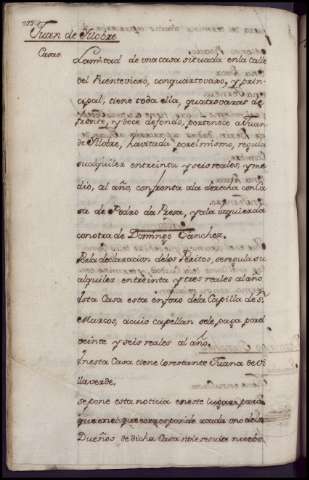 Juan de Silobre
Casas
La mitad de una casa situada en la calle
del Puenteviejo, con quarto vajo, y prin-
cipal, tiene toda ella, quatro varas de
frente, y doce de fondo, pertenece a Juan
de Silobre, havitada por el mismo, regula
su alquiler en treinta y seis reales, y me-
dio, al año, confronta a la derecha con la
de Pedro da Presa, y a la izquierda
con otra de Domingo Sanchez.
Por la declaracion de los Peritos, se regula su
alquiler en treinta y tres reales al año
Esta Casa esta en foro de la Capilla de Sn.
Marcos, a cuio capellan se le paga por el
veinte y seis reales al año.
En esta Casa tiene la restante Juana de Vi
llaverde.
Se pone esta noticia en este lugar, para
que en el que corresponde a cada uno de los
Dueños de dicha Casa no se necesite